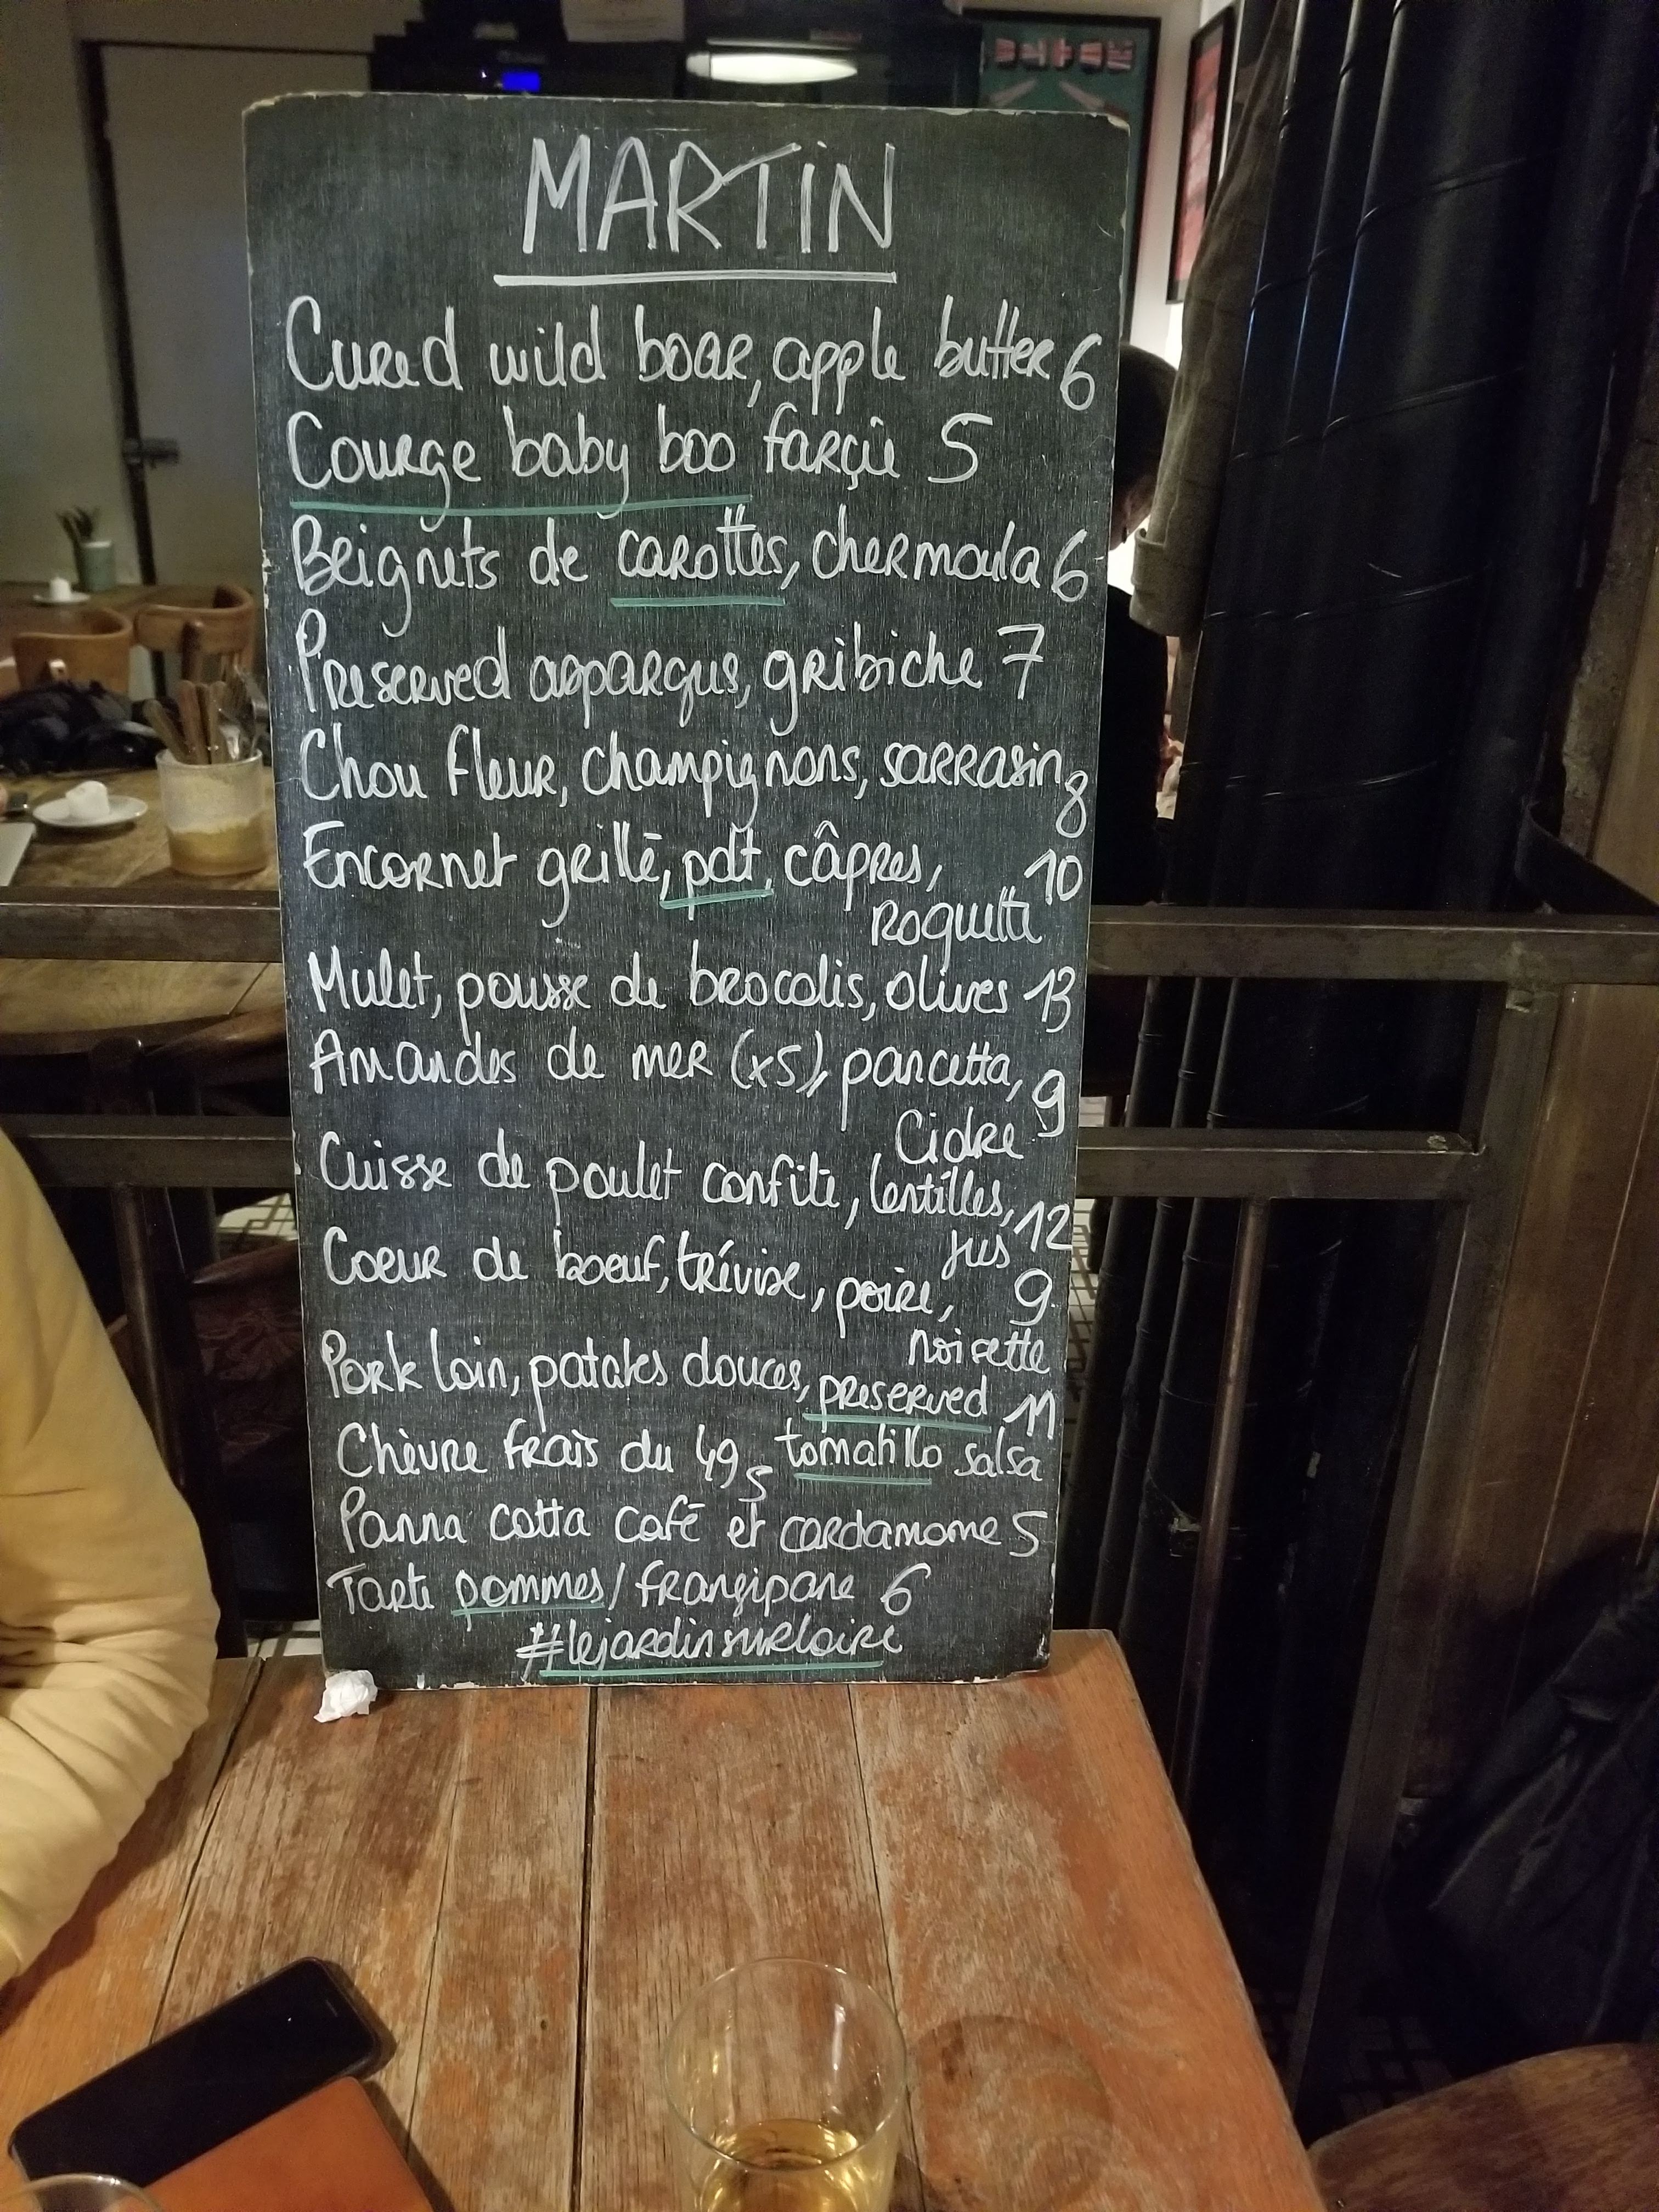 MARTiN
Cured wild boar, apple butter 6
Courge baby boo farçie 5
Beignets de carottes, chermoula 6
Preserved asparagus, gribiche 7
Chou fleur, champignons, sarrasin 8
Encornet grillé, pdt, câpres, 10
Roquette
Mulet, pousse de brocolis, olives 13
Amandes de mer (x5), pancetta, 9
Cidre
Cuisse de poulet confite, lentilles, 12
jus
Coeur de boeuf, trévise, poire, 9
noisette
Pork loin, patates douces, preserved 11
tomatillo salsa
Chèvre frais du 49 5
Panna cotta café et cardamome 5
Tarte pommes/frangipane 6
#lejardinsurloire